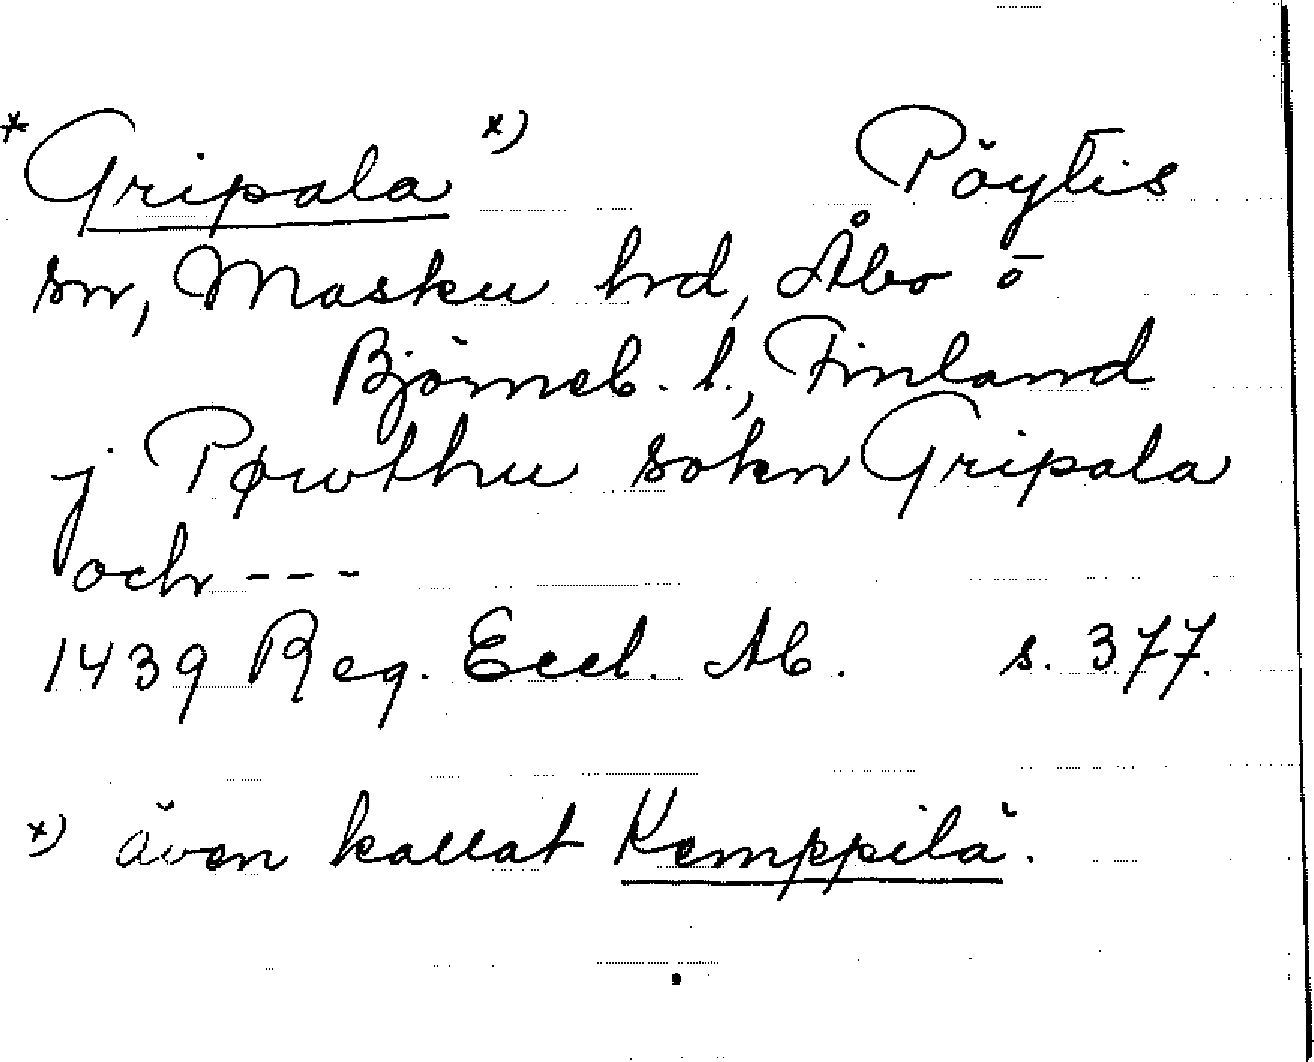 *Gripala x) Pöytis
sn, Masku hrd, Åbo o
Björneb. l., Finland
j Pøwthu sokn Gripala
och ---
1439 Reg. Eccl. Ab. s. 377.
x) även kallat Kemppilä.